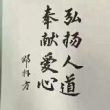 弘扬人道
奉献爱心
邓朴方